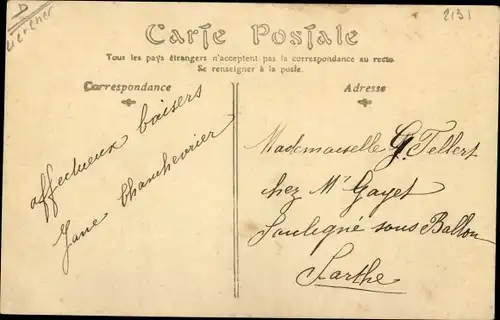 2131
Carte Postale
Tous les pays étrangers n'acceptent pas la correspondance au recto.
Se renseigner à la poste.
Correspondance
Adresse
affectueux baisers
Jane Chanchevrier
Mademoiselle G. Tellert
chez Mr Gayet
Souligné sous Ballon
Sarthe